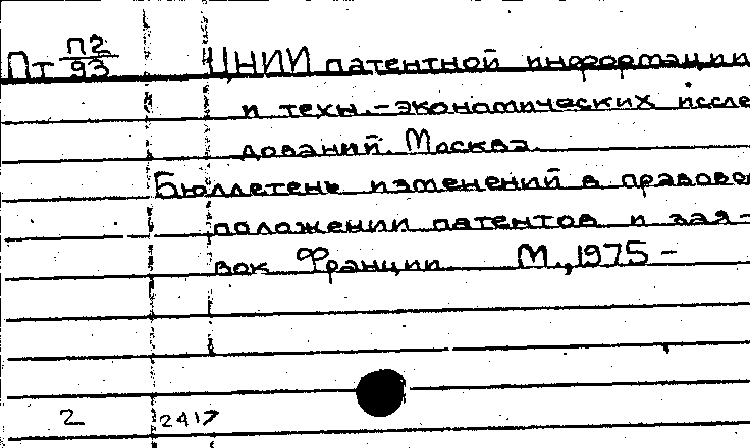 Пт П2/93 ЦНИИ патентной информации
и техн.-экономических иссле
дований. Москва.
Бюллетень изменений в правовом
положении патентов и зая-
вок Франции. М., 1975 –
2 2417